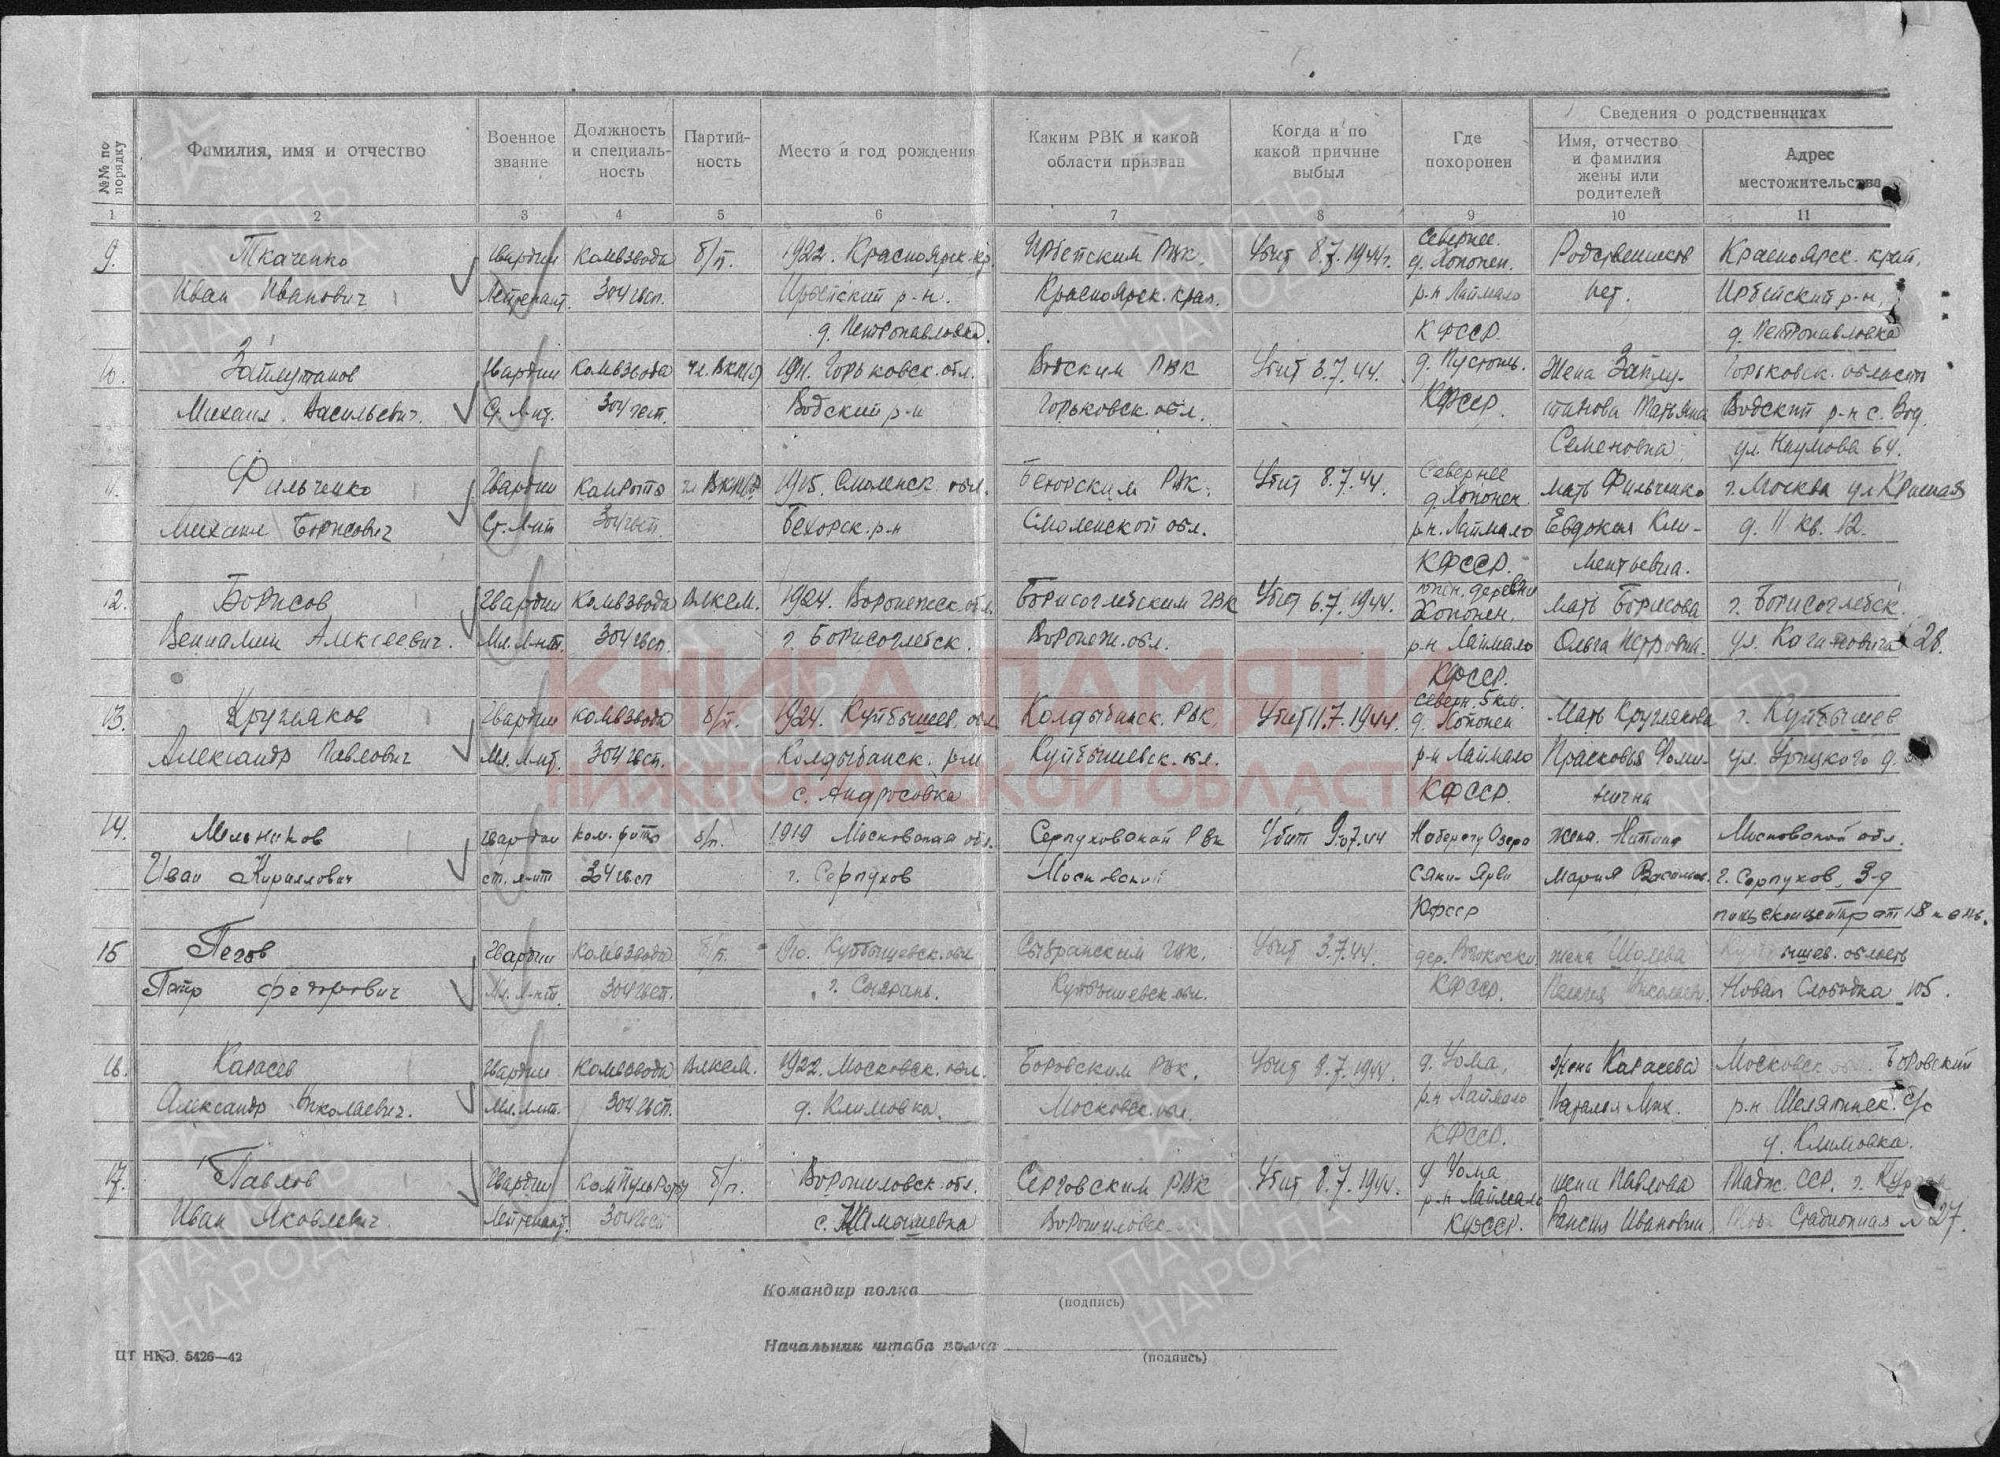 №№ по порядку
Фамилия, имя и отчество
Военное звание
Должность и специаль- ность
Партий- ность
Место и год рождения
Каким РВК и какой области призван
Когда и по какой причине выбыл
Где похоронен
Сведения о родственниках
Имя, отчество и фамилия жены или родителей
Адрес местожительства
1 2 3 4 5 6 7 8 9 10 11
9. Ткаченко Гвардии Комвзвода б/п. 1922. Красноярск. кр. Ирбейским РВК. Убит 8.7.1944г. Севернее д. Лопонен. Родственников Красноярск. край,
Иван Иванович Лейтенант. 304 гвсп. Ирбейский р-н. Красноярск. края. р-н Лаймало нет. Ирбейский р-н,
д. Петропавловка. КФССР. д. Петропавловка
10. Гвардии Комвзвода чл. ВКП(б) 1911. Горьковск. обл. Вадским РВК Убит 8.7.44. д. Жена Горьковск. область
Михаил Васильевич. Ст. Л-нт. 304 гвсп. Вадский р-н Горьковск. обл. КФССР. Татьяна Вадский р-н с. Вад
Семеновна. ул. Наумова 64.
11. Фильченко Гвардии Комроты чл ВКП(б) 1905. Смоленск. обл. РВК. Убит 8.7.44. Севернее д. Лопонен Мать Фильченко г. Москва ул Красная
Михаил Борисович Ст. Л-нт 304 гвсп р-н Смоленской обл. р-н. Лаймало Евдокия Кли- д. 11 кв. 12.
КФССР. ментьевна.
12. Борисов Гвардии Комвзвода ВЛКСМ. 1924. Воронежск. обл. Борисоглебским ГВК Убит 6.7.1944. деревни Лопонен. Мать Борисова г. Борисоглебск.
Вениамин Алексеевич. Мл. Л-нт. 304 гвсп. г. Борисоглебск. Воронеж. обл. р-н Лаймало Ольга Петровна. ул. Кагановича 28.
КФССР.
13. Кругляков Гвардии Комвзвода б/п. 1924. Куйбышев. обл. Колдыбанск. РВК Убит 11.7.1944. Северн. 5 км. д. Лопонен Мать Круглякова г. Куйбышев
Александр Павлович Мл. Л-нт. 304 гвсп. Колдыбанск. р-н Куйбышевск. обл. р-н Лаймало Прасковья Фоми- ул. Урицкого д.
с. Андросовка КФССР. нична
14. Мельников Гвардии ком. роты б/п. 1919 Московская обл. Серпуховской РВК Убит 9.07.44 На берегу Озера жена. Московской обл.
Иван Кириллович ст. л-нт 304 гвсп г. Серпухов Московской Сяки-Ярви Мария г. Серпухов, 3-д
КФССР
15 Пегов Гвардии Комвзвода б/п. 1910. Куйбышевск. обл Сызранским ГВК. Убит 3.7.44. дер. жена Куйбышев. область
Петр Федорович Мл. Л-нт. 304 гвсп. г. Сызрань. Куйбышевск обл. КФССР. Новая Слободка 105.
16. Карасев Гвардии Комвзвода ВЛКСМ. 1922. Московск. обл. Боровским РВК. Убит 8.7.1944. д. Уома, Жена Карасева Московск. обл. Боровский
Александр Николаевич. Мл. Л-нт. 304 гвсп. д. Климовка. Московск. обл. р-н Лаймало Наталья Мих. р-н с/с
КФССР. д. Климовка.
17. Павлов Гвардии Компульроты б/п. Ворошиловск. обл. РВК Убит 8.7.1944. д Уома р-н Лаймало жена Павлова Тадж. ССР. г. Курган
Иван Яковлевич. Лейтенант. 304 гвсп Ворошиловск. КФССР. Раисия Ивановна Стадионная № 27.
Командир полка
(подпись)
Начальник штаба полка
(подпись)
ЦТ НКО. 5426—42
КНИГА ПАМЯТИ
НИЖЕГОРОДСКОЙ ОБЛАСТИ
ПАМЯТЬ НАРОДА